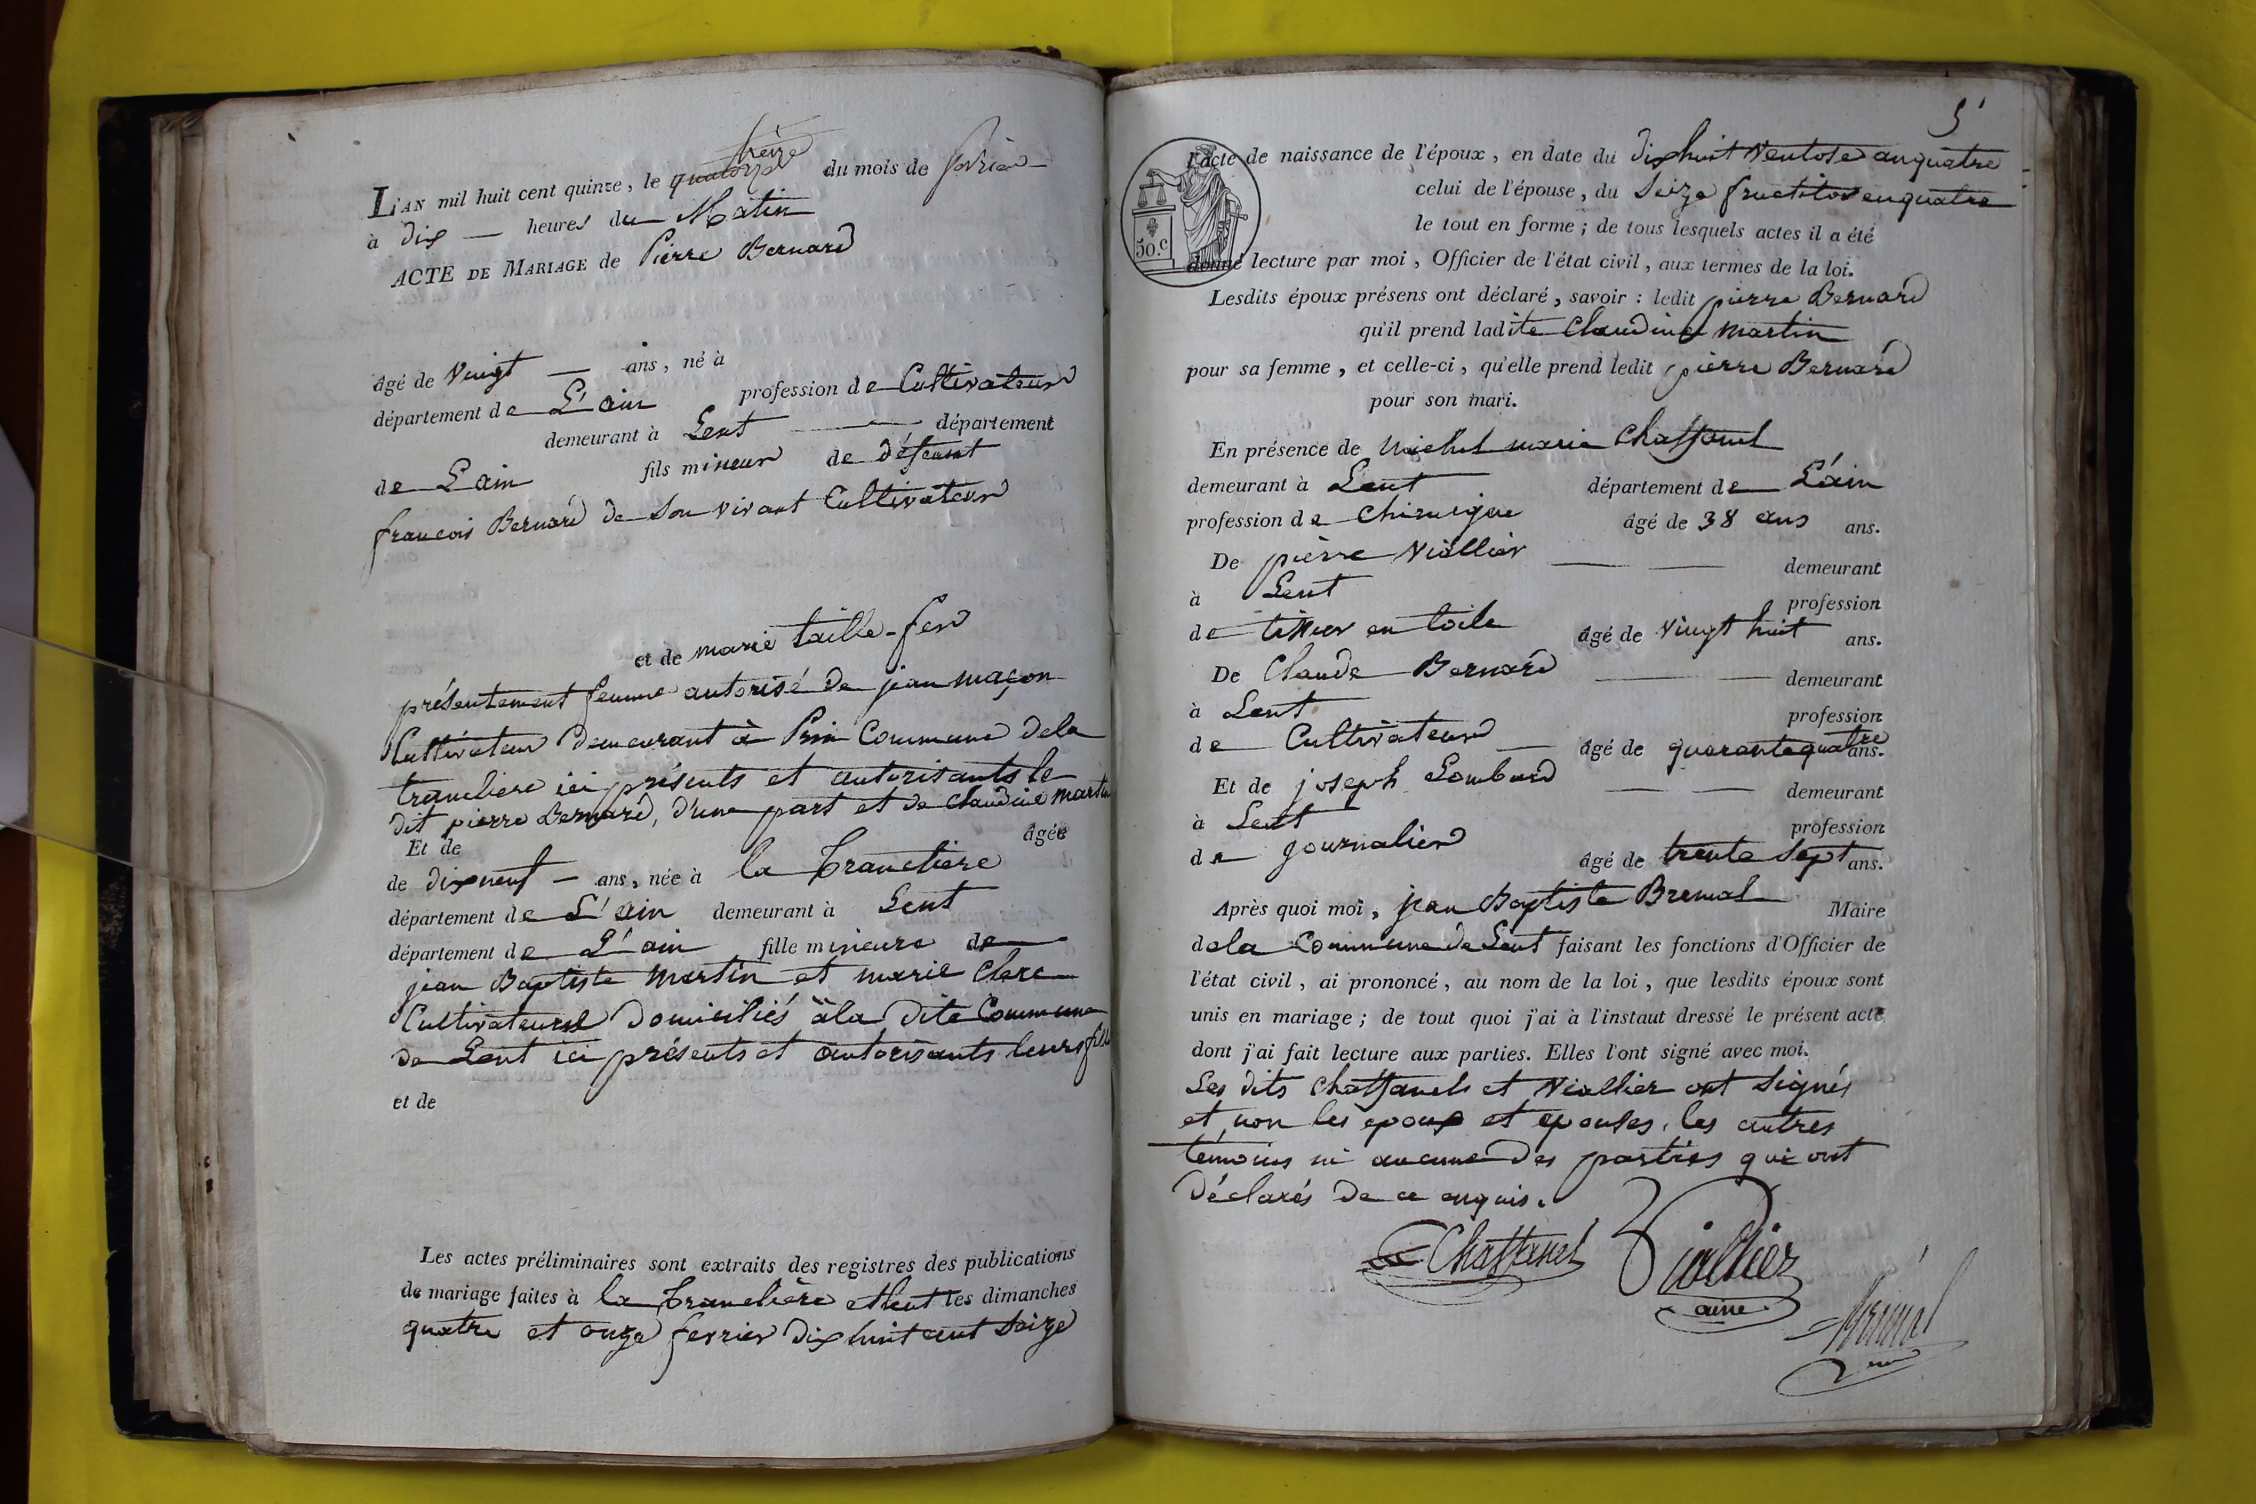 L'AN mil huit cent quinze, le quatorze treize du mois de fevrier
à dix heures du Matin
ACTE DE MARIAGE de Pierre Bernard
âgé de Vingt ans, né à
département de L'ain profession de Cultivateur
demeurant à Lent département
de L'ain fils mineur de défeunt
françois Bernard de Son vivant Cultivateur
et de marie taille-fer
présentement femme autorisé de jean maçon
Cultivateur demeurant à Commune dela
trancliere ici présents et autorisants le
dit pierre Bernard, d'une part et de Claudine Martin
Et de âgée
de dixneuf ans, née à la trancliere
département de L'ain demeurant à Lent
département de L'ain fille mineure de
jean Baptiste Martin et marie Clerc
Cultivateurs domiciliés àla dite Commune
de Lent ici présents et autorisants leurs fille
et de
Les actes préliminaires sont extraits des registres des publications
de mariage faites à la trancliere et lent les dimanches
quatre et onze fevrier dix huit cent Seize
5
l'acte de naissance de l'époux, en date du dixhuit Ventose an quatre
celui de l'épouse, du Seize fructidor en quatre
le tout en forme; de tous lesquels actes il a été
50.c
donné lecture par moi, Officier de l'état civil, aux termes de la loi.
Lesdits époux présens ont déclaré, savoir: ledit pierre Bernard
qu'il prend ladite Claudine Martin
pour sa femme, et celle-ci, qu'elle prend ledit pierre Bernard
pour son mari.
En présence de Michel marie Chassanel
demeurant à Lent département de L'ain
profession de Chirurgien âgé de 38 ans ans.
De pierre Viallier demeurant
à Lent profession
de tissier en toile âgé de Vingt huit ans.
De Claude Bernard demeurant
à Lent profession
de Cultivateur âgé de quarante quatre ans.
Et de joseph Lombard demeurant
à Lent profession
de journalier âgé de trente Sept ans.
Après quoi moi, jean Baptiste Bremal Maire
dela Commune de Lent faisant les fonctions d'Officier de
l'état civil, ai prononcé, au nom de la loi, que lesdits époux sont
unis en mariage; de tout quoi j'ai à l'instant dressé le présent acte
dont j'ai fait lecture aux parties. Elles l'ont signé avec moi.
Les dits Chassanels et Viallier ont Signés
et non les epoux et epouses, les autres
témoins ni aucune des parties qui ont
déclarés de ce enquis.
Chassanel Viallier
aine
Bremal